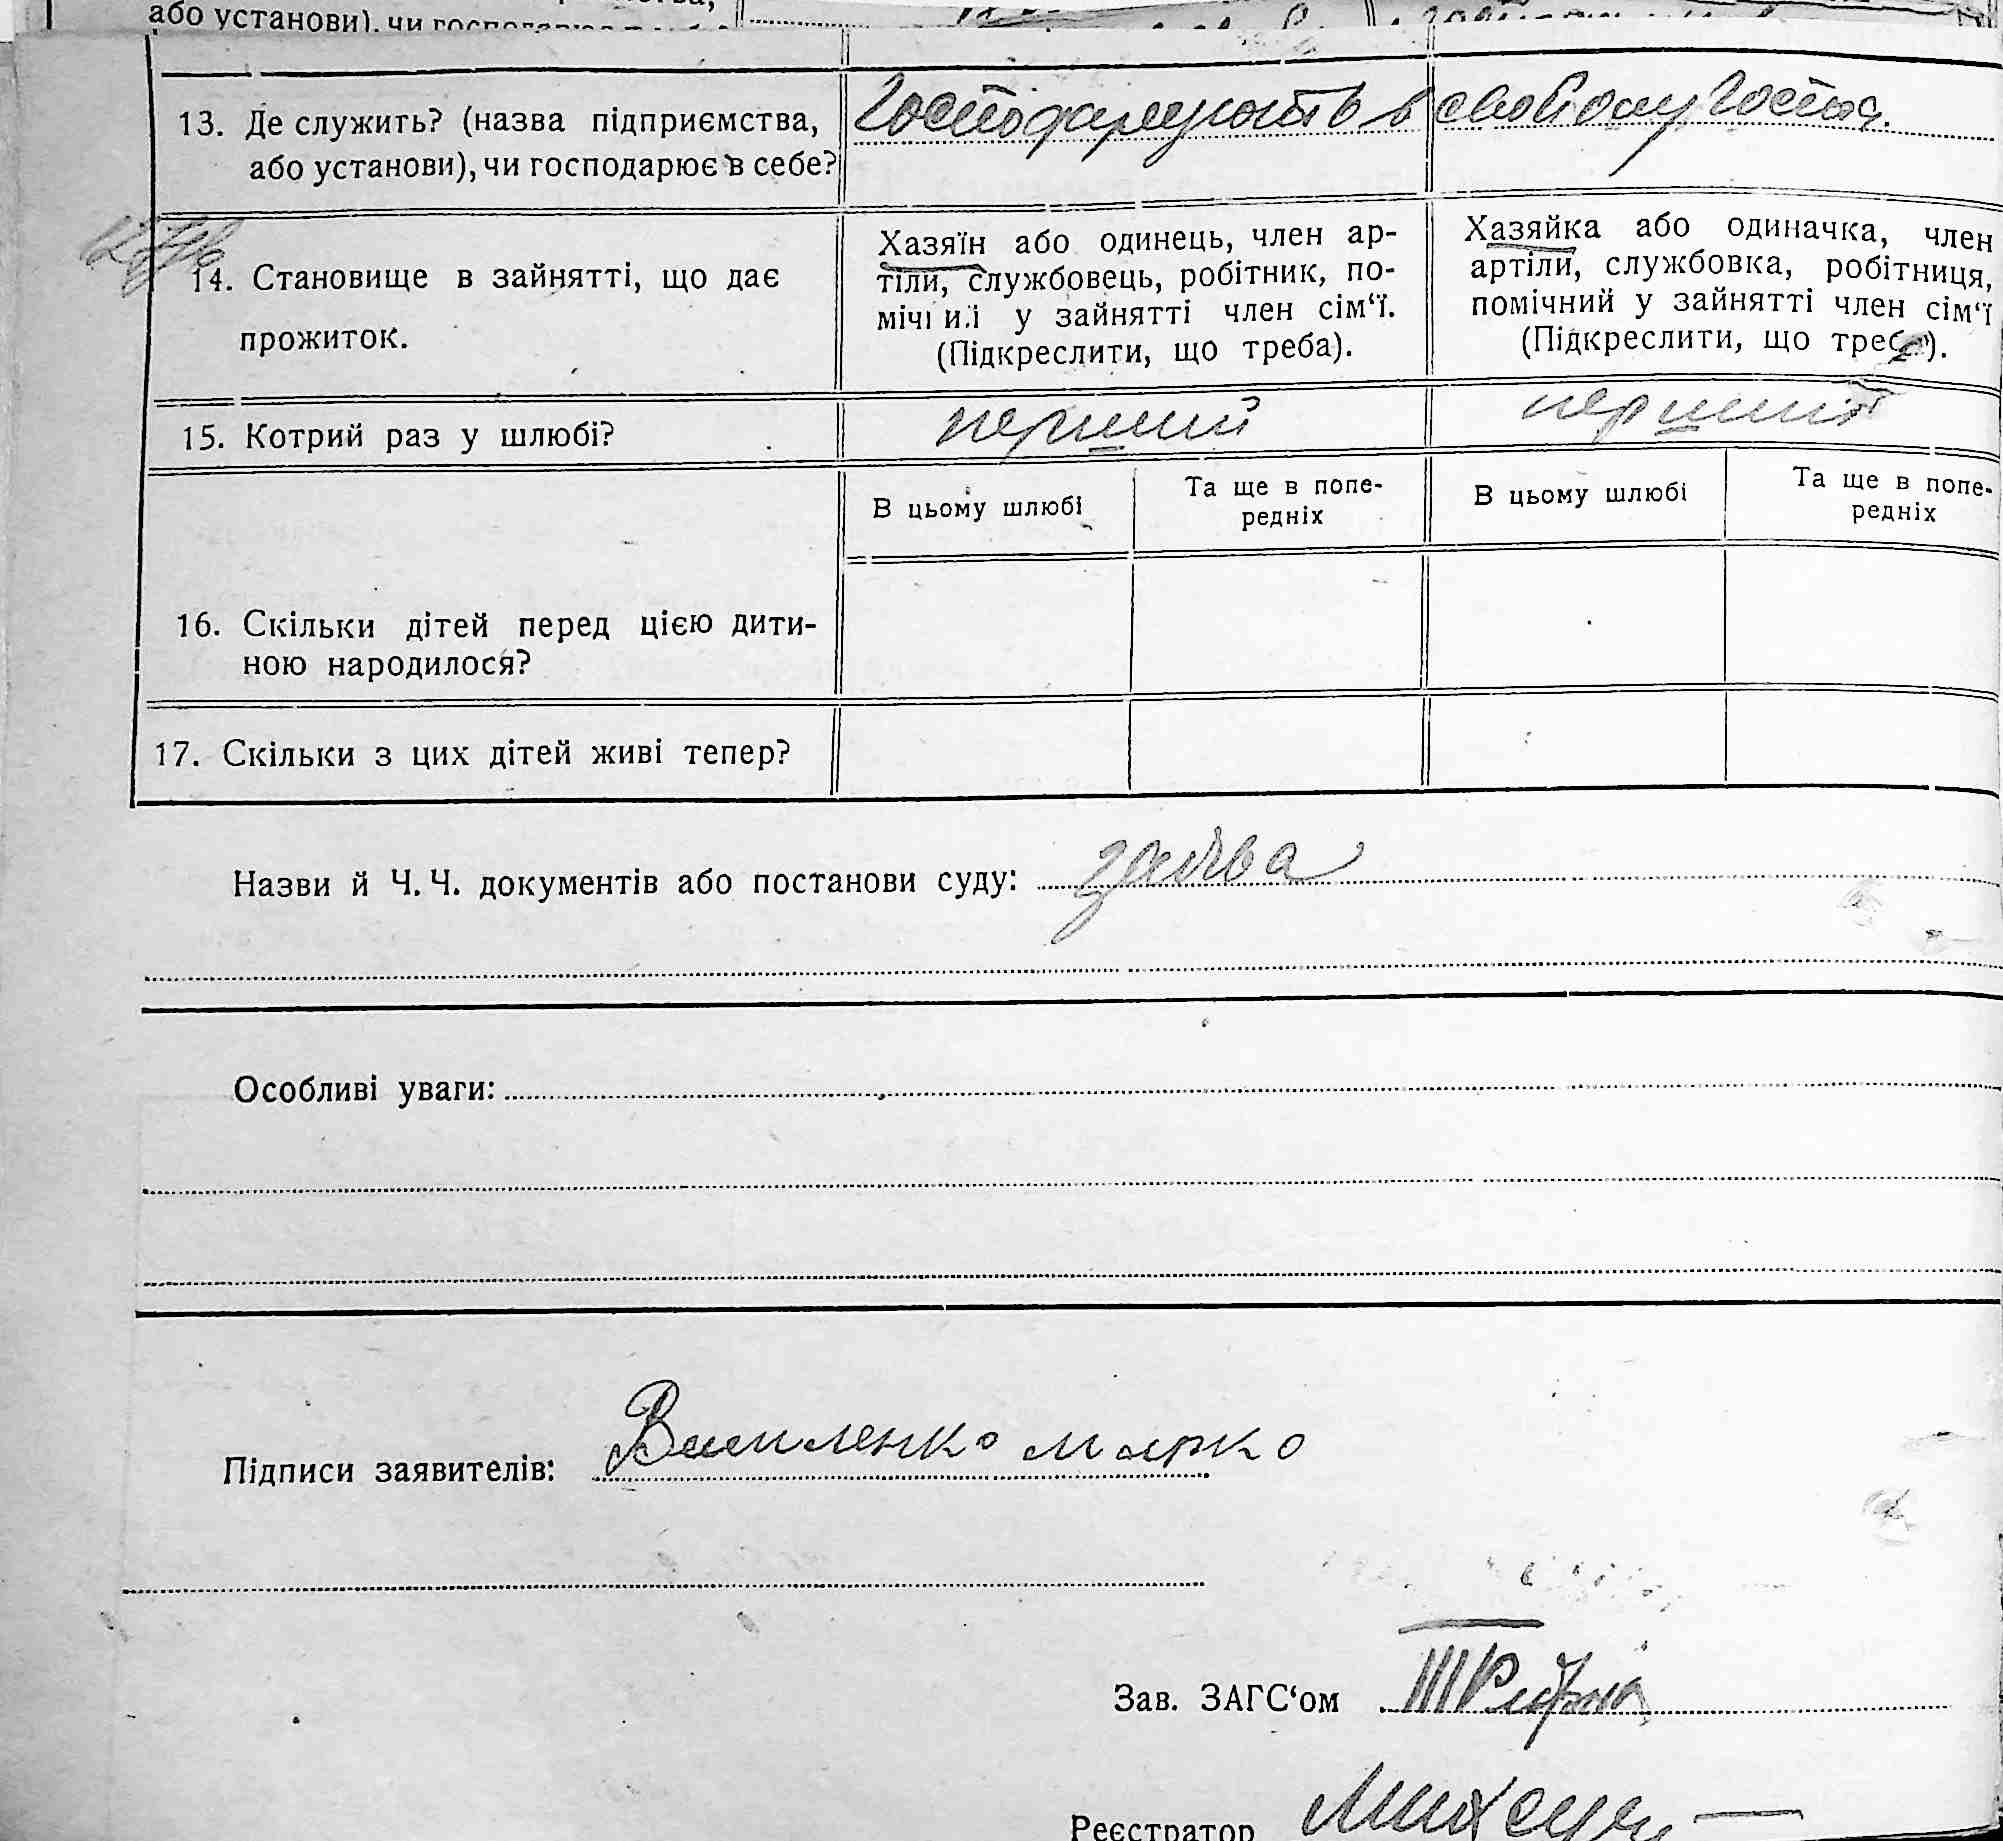 або установи), чи господарює в себе?
13. Де служить? (назва підприємства,
або установи), чи господарює в себе?
Господарюють в своЂому госпо.
14. Становище в зайнятті, що дає
прожиток.
Хазяїн або одинець, член ар-
тіли, службовець, робітник, по-
мічний у зайнятті член сім‘ї.
(Підкреслити, що треба).
Хазяйка або одиначка, член
артіли, службовка, робітниця,
помічний у зайнятті член сім‘ї
(Підкреслити, що треба).
15. Котрий раз у шлюбі?
перший
перший
В цьому шлюбі
Та ще в попе-
редніх
В цьому шлюбі
Та ще в попе-
редніх
16. Скільки дітей перед цією дити-
ною народилося?
17. Скільки з цих дітей живі тепер?
Назви й Ч. Ч. документів або постанови суду: заява
Особливі уваги:
Підписи заявителів: Василенко Марко
Зав. ЗАГС‘ом
Реєстратор